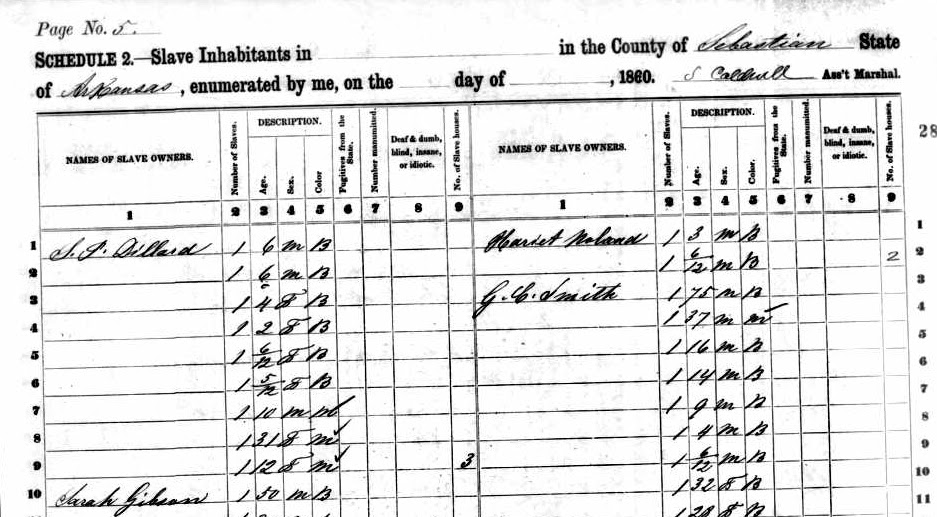 Page No. 5.
SCHEDULE 2.—Slave Inhabitants in in the County of Sebastian State
of Arkansas, enumerated by me, on the day of , 1860. S Caldwell Ass't Marshal.
NAMES OF SLAVE OWNERS. Number of Slaves. DESCRIPTION. Age. Sex. Color Fugitives from the State. Number manumitted. Deaf & dumb, blind, insane, or idiotic. No. of Slave houses. NAMES OF SLAVE OWNERS. Number of Slaves. DESCRIPTION. Age. Sex. Color. Fugitives from the State. Number manumitted. Deaf & dumb, blind, insane, or idiotic. No. of Slave houses. 28
1 2 3 4 5 6 7 8 9 1 2 3 4 5 6 7 8 9
1 S. P. Dillard 1 6 m B Harriet Noland 1 3 m B 1
2 1 6 m B 1 6/12 m B 2 2
3 1 4 F B G. C. Smith 1 75 m B 3
4 1 2 F B 1 37 m m 4
5 1 6/12 F B 1 16 m B 5
6 1 5/12 F B 1 14 m B 6
7 1 10 m m 1 9 m B 7
8 1 31 F m 1 4 m B 8
9 1 12 F m 3 1 6/12 m B 9
10 Sarah Gibson 1 50 m B 1 32 F B 10
1 28 F B 11